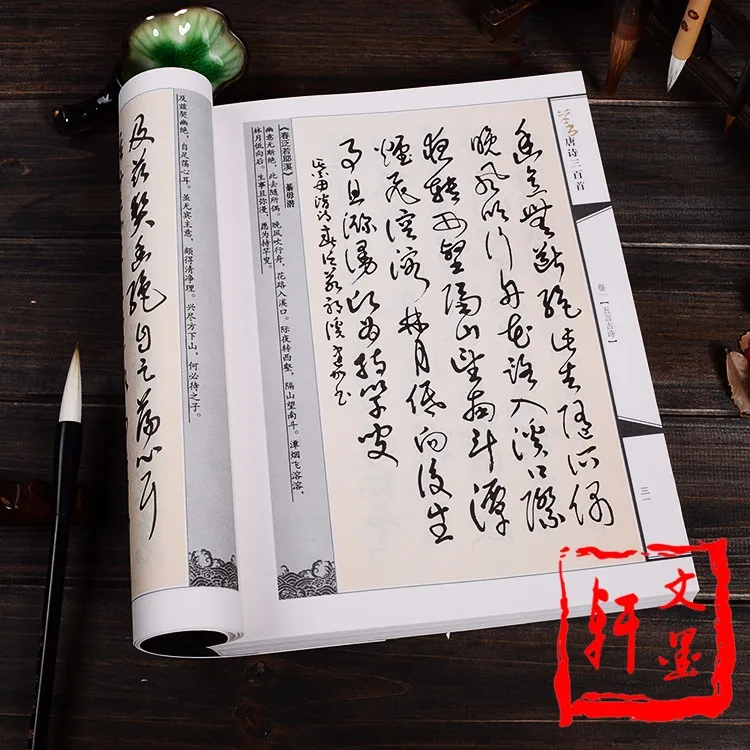 唐诗三百首
卷一【五言古诗】
三一
幽意無斷絕此去隨所偶
晚風吹行舟花路入溪口際
夜轉西壑隔山望南斗潭
煙飛溶溶林月低向後生
事且瀰漫願為持竿叟
《春泛若耶溪》 綦毋潜
幽意无断绝，此去随所偶。晚风吹行舟，花路入溪口。际夜转西壑，隔山望南斗。潭烟飞溶溶，
林月低向后。生事且弥漫，愿为持竿叟。
及茲契幽絕自足蕩心耳
及兹契幽绝，自足荡心耳。虽无宾主意，颇得清净理。兴尽方下山，何必待之子。
文墨轩